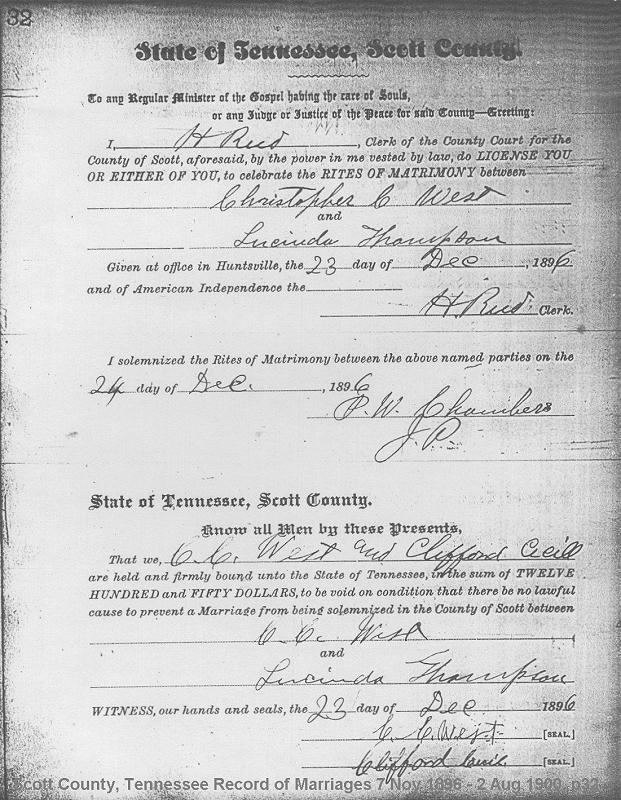 32
State of Tennessee, Scott County.
To any Regular Minister of the Gospel having the care of Souls,
or any Judge or Justice of the Peace for said County—Greeting:
I, H Reed, Clerk of the County Court for the
County of Scott, aforesaid, by the power in me vested by law, do LICENSE YOU
OR EITHER OF YOU, to celebrate the RITES OF MATRIMONY between
Christopher C West
and
Lucinda Thompson
Given at office in Huntsville, the 23 day of Dec, 1896
and of American Independence the
H. Reed. Clerk.
I solemnized the Rites of Matrimony between the above named parties on the
24 day of Dec., 1896
P. W. Chambers
J. P.
State of Tennessee, Scott County.
Know all Men by these Presents,
That we, C. C. West and Clifford Cecill
are held and firmly bound unto the State of Tennessee, in the sum of TWELVE
HUNDRED and FIFTY DOLLARS, to be void on condition that there be no lawful
cause to prevent a Marriage from being solemnized in the County of Scott between
C. C. West
and
Lucinda Thompson
WITNESS, our hands and seals, the 23 day of Dec 1896
C. C. West [SEAL.]
Clifford [SEAL.]
Scott County, Tennessee Record of Marriages 7 Nov 1896 - 2 Aug 1900, p32